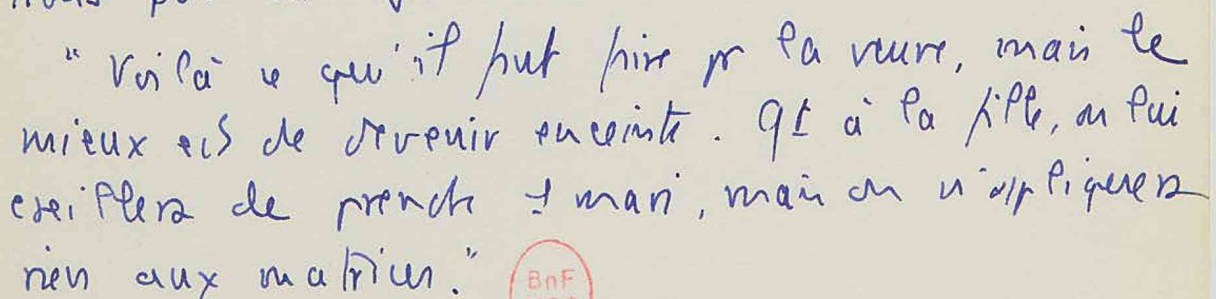 "Voilà ce qu'il faut faire pr la veuve, mais le
mieux est de devenir enceinte. Qt à la fille, on lui
cseillera de prendre 1 mari, mais on n'appliquera
rien aux matrices."
BnF